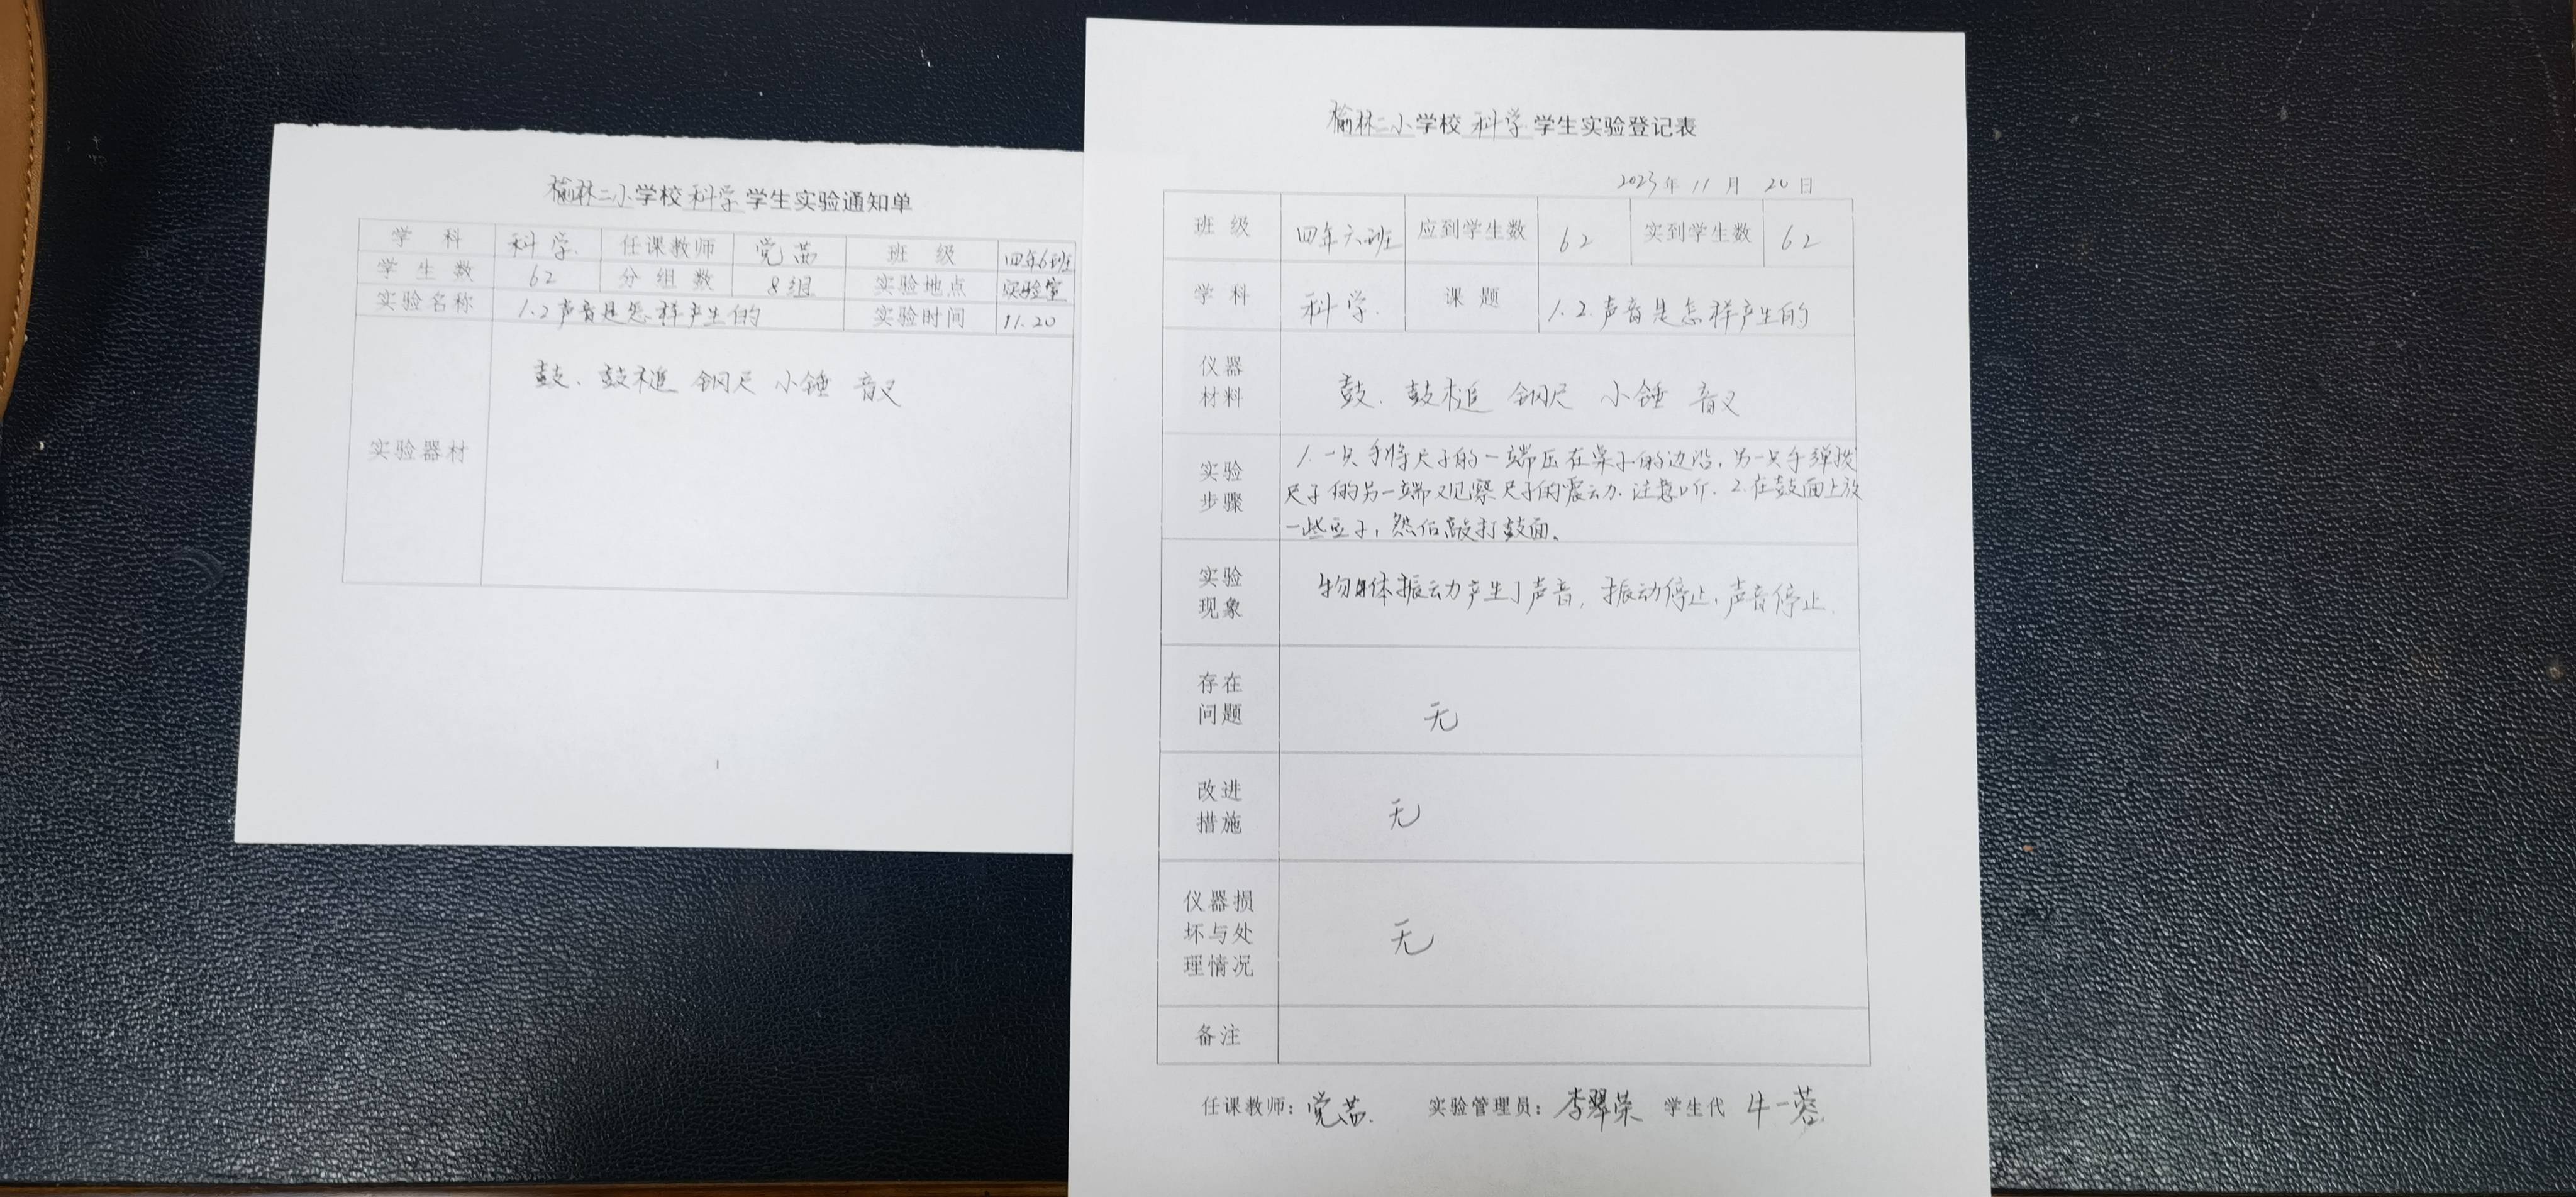 榆林二小学校科学学生实验通知单
学 科 科学. 任课教师 党茜 班 级 四年6班
学 生 数 62 分 组 数 8组 实验地点 实验室
实验名称 1.2声音是怎样产生的 实验时间 11.20
实验器材 鼓、鼓槌 钢尺 小锤 音叉
1
榆林二小学校科学学生实验登记表
2023年 11月 20日
班 级 四年六班 应到学生数 62 实到学生数 62
学 科 科学. 课 题 1.2.声音是怎样产生的
仪器
材料
鼓、鼓槌 钢尺 小锤 音叉
实验
步骤
1.一只手将尺子的一端压在桌子的边沿,另一只手弹拨
尺子的另一端观察尺子的震动.注意听.2.在鼓面上放
一些豆子,然后敲打鼓面。
实验
现象
物体振动产生了声音,振动停止,声音停止.
存在
问题
无
改进
措施
无
仪器损
坏与处
理情况
无
备注
任课教师:党茜. 实验管理员:李翠荣 学生代 牛一蓉